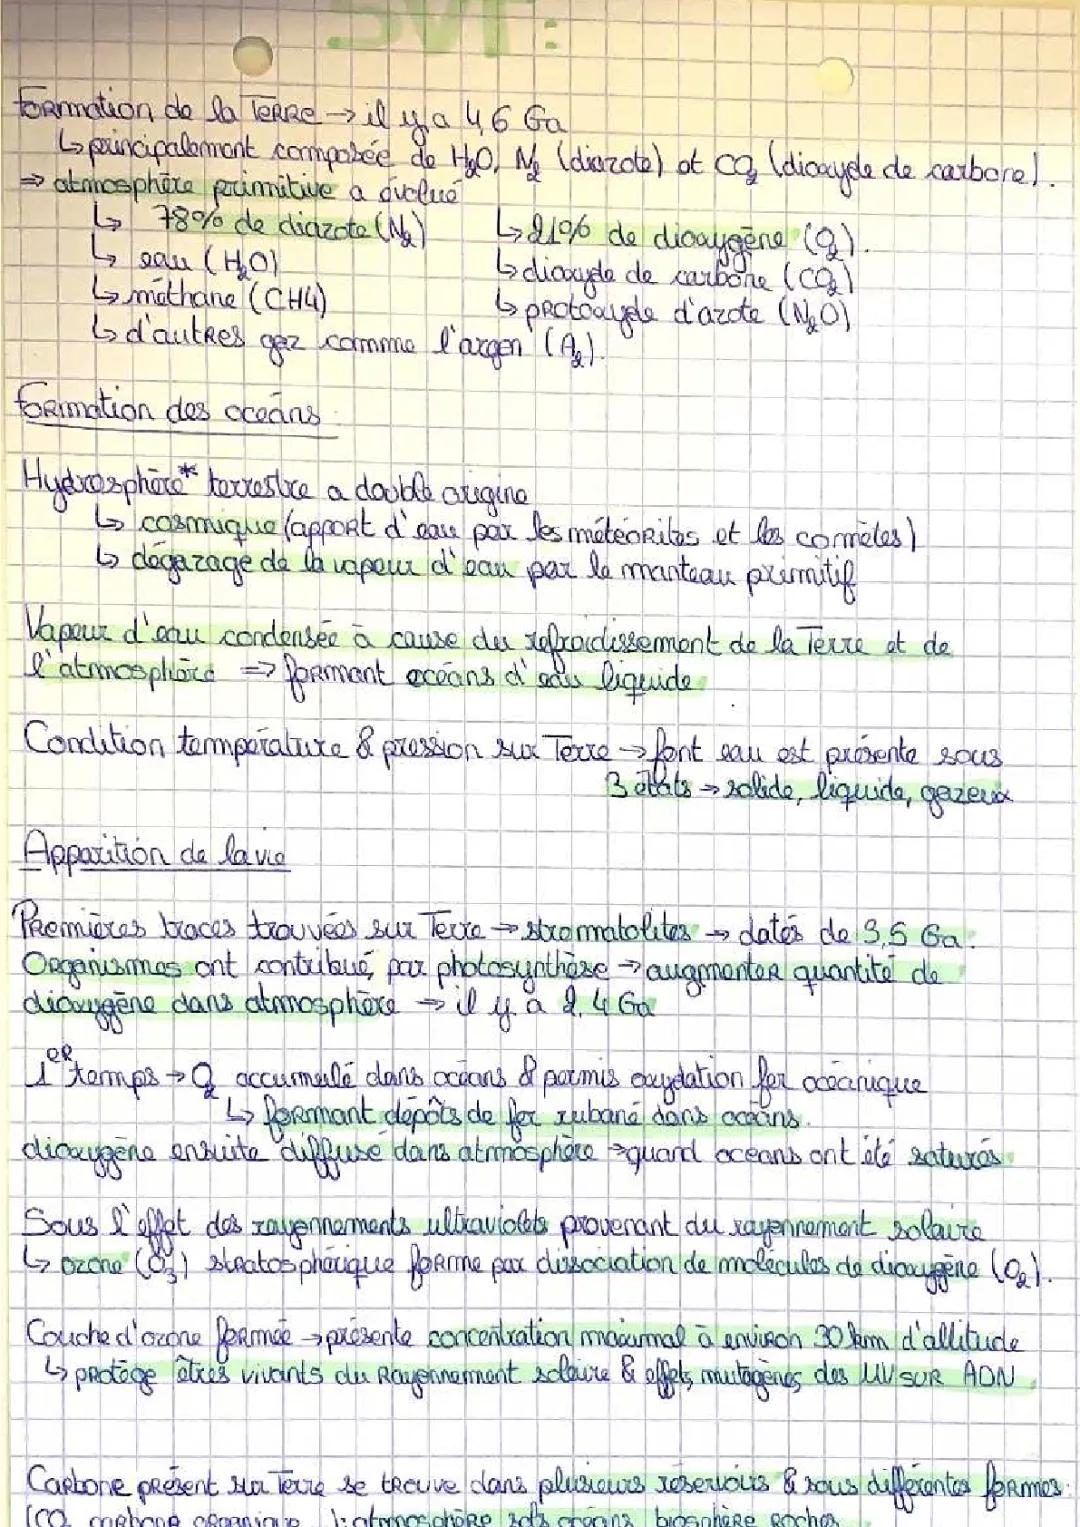 SVT :
Formation de la Terre → il y a 4,6 Ga
↳ principalement composée de H₂O, N₂ (diazote) et CO₂ (dioxyde de carbone).
⇒ atmosphère primitive a évolué
↳ 78% de diazote (N₂) ↳ 21% de dioxygène (O₂).
↳ eau (H₂O) ↳ dioxyde de carbone (CO₂)
↳ méthane (CH4) ↳ protoxyde d'azote (N₂O)
↳ d'autres gaz comme l'argon (A₂).
Formation des océans
Hydrosphère* terrestre a double origine
↳ cosmique (apport d'eau par les météorites et les comètes)
↳ dégazage de la vapeur d'eau par le manteau primitif
Vapeur d'eau condensée à cause du refroidissement de la Terre et de
l'atmosphère ⇒ formant océans d'eau liquide
Condition température & pression sur Terre → font eau est présente sous
3 états → solide, liquide, gazeux
Apparition de la vie
Premières traces trouvées sur Terre → stromatolites → datés de 3,5 Ga.
Organismes ont contribué, par photosynthèse → augmenter quantité de
dioxygène dans atmosphère → il y a 2,4 Ga
1er temps → O₂ accumulé dans océans & permis oxydation fer océanique
↳ formant dépôts de fer rubané dans océans.
dioxygène ensuite diffusé dans atmosphère → quand océans ont été saturés
Sous l'effet des rayonnements ultraviolets provenant du rayonnement solaire
↳ ozone (O₃) stratosphérique forme par dissociation de molécules de dioxygène (O₂).
Couche d'ozone formée → présente concentration maximal à environ 30 km d'altitude
↳ protège êtres vivants du Rayonnement solaire & effets mutagènes des UV sur ADN
Carbone présent sur Terre se trouve dans plusieurs réservoirs & sous différentes formes:
(CO₂ carbone organique : atmosphère sols océans biosphère Roches